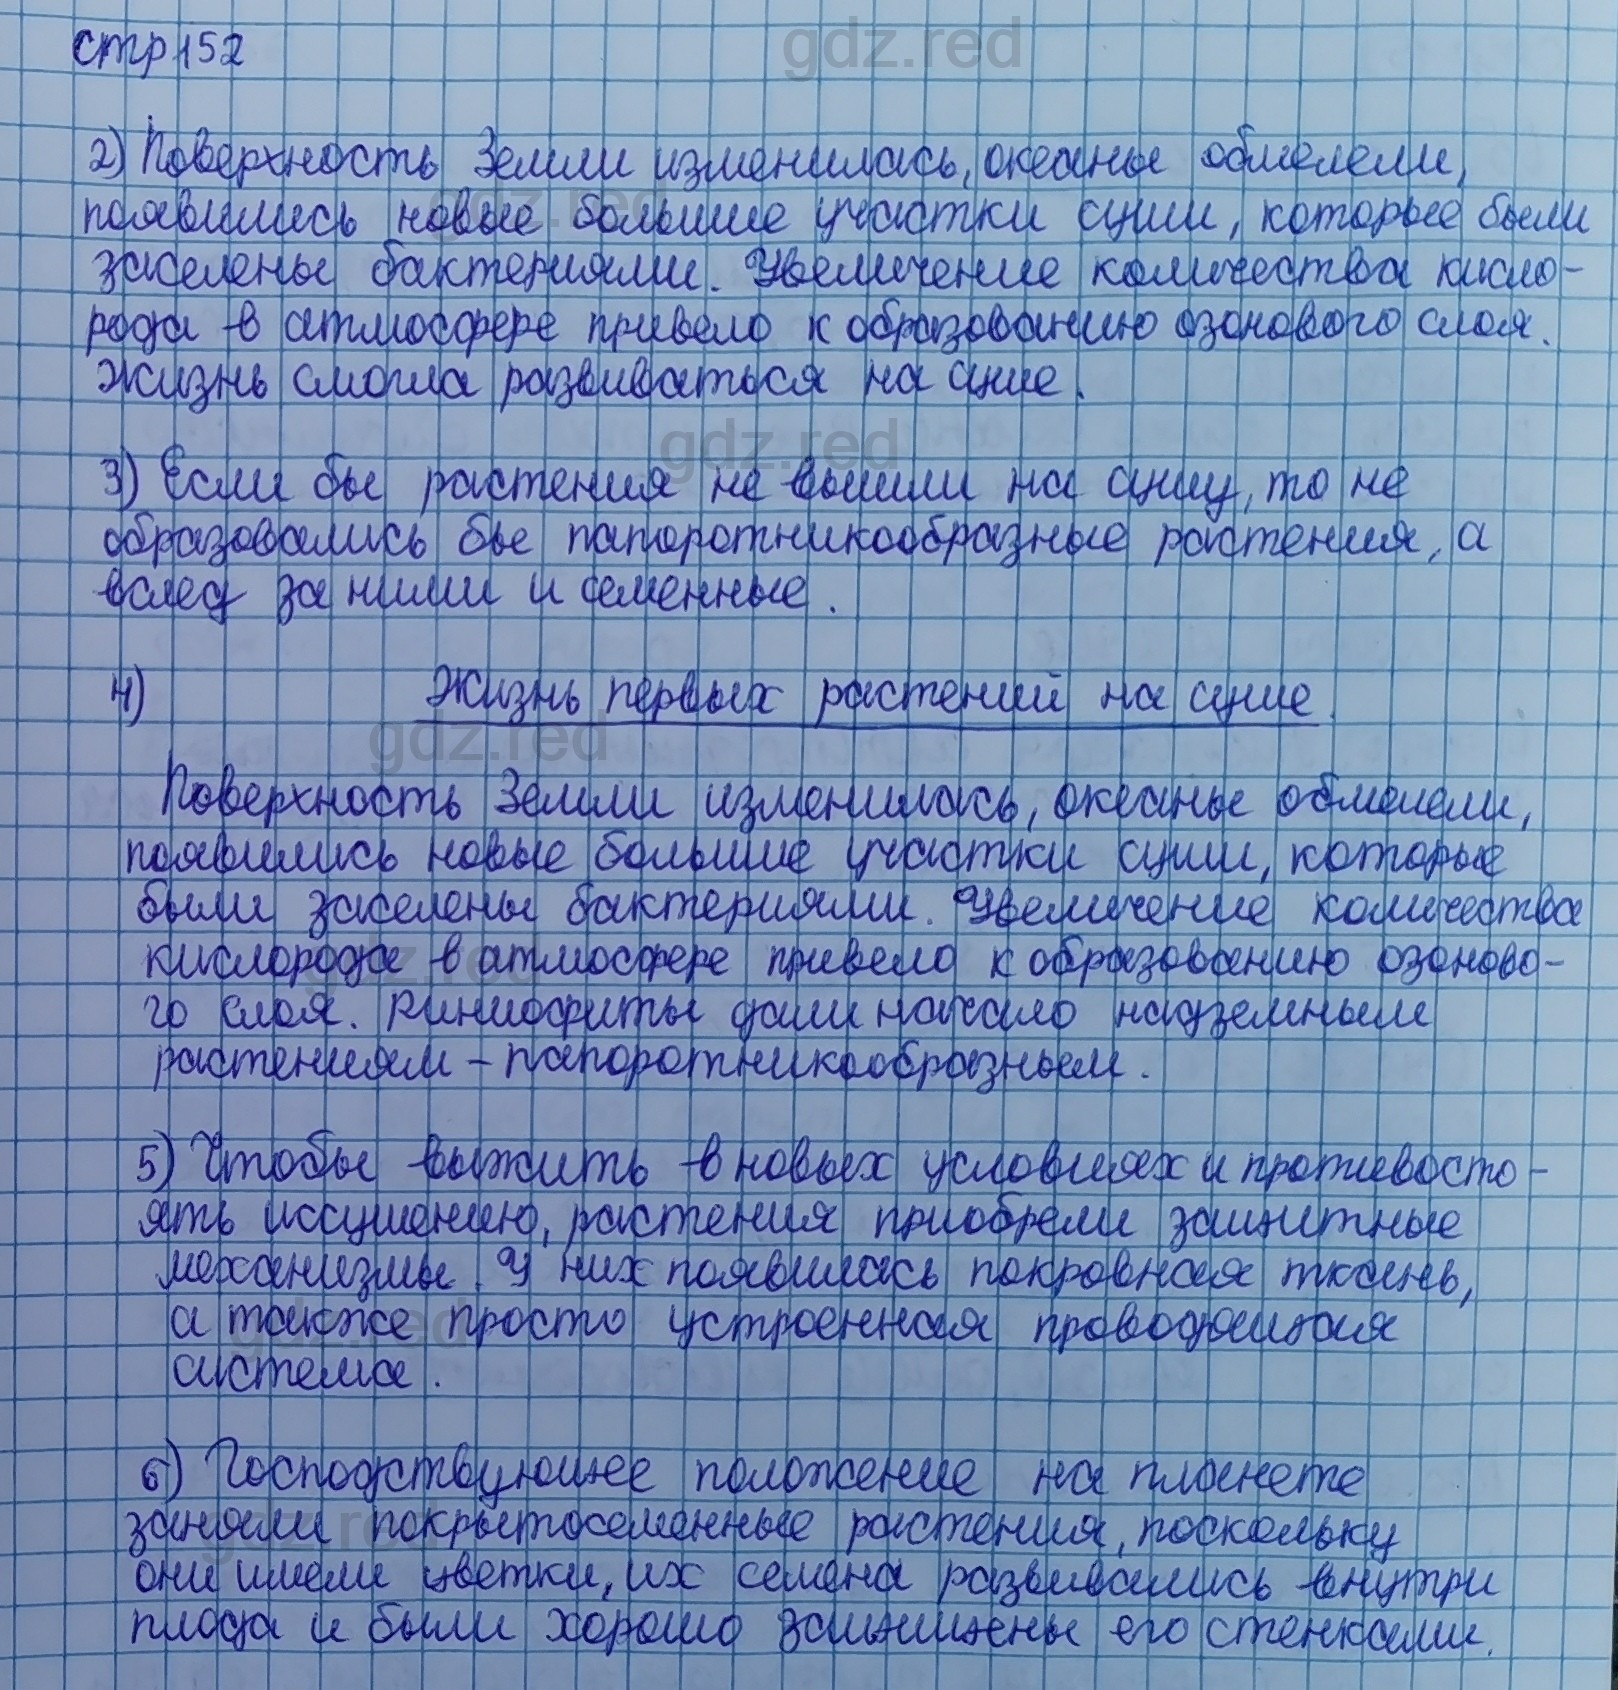 стр 152
gdz.red
2) Поверхность Земли изменилась, океаны обмелели,
gdz.red
появились новые большие участки суши, которые были
заселены бактериями. Увеличение количества кисло-
рода в атмосфере привело к образованию озонового слоя.
Жизнь смогла развиваться на суше.
gdz.red
3) Если бы растения не вышли на сушу, то не
образовались бы папоротникообразные растения, а
вслед за ними и семенные.
4) Жизнь первых растений на суше.
gdz.red
Поверхность Земли изменилась, океаны обмелели,
появились новые большие участки суши, которые
были заселены бактериями. Увеличение количества
кислорода в атмосфере привело к образованию озоново-
gdz.red
го слоя. Риниофиты дали начало надземным
растениям – папоротникообразным.
5) Чтобы выжить в новых условиях и противосто-
ять иссушению, растения приобрели защитные
механизмы. У них появилась покровная ткань,
а также просто устроенная проводящая
gdz.red
система.
6) Господствующее положение на планете
заняли покрытосеменные растения, поскольку
gdz.red
они имели цветки, их семена развивались внутри
плода и были хорошо защищены его стенками.